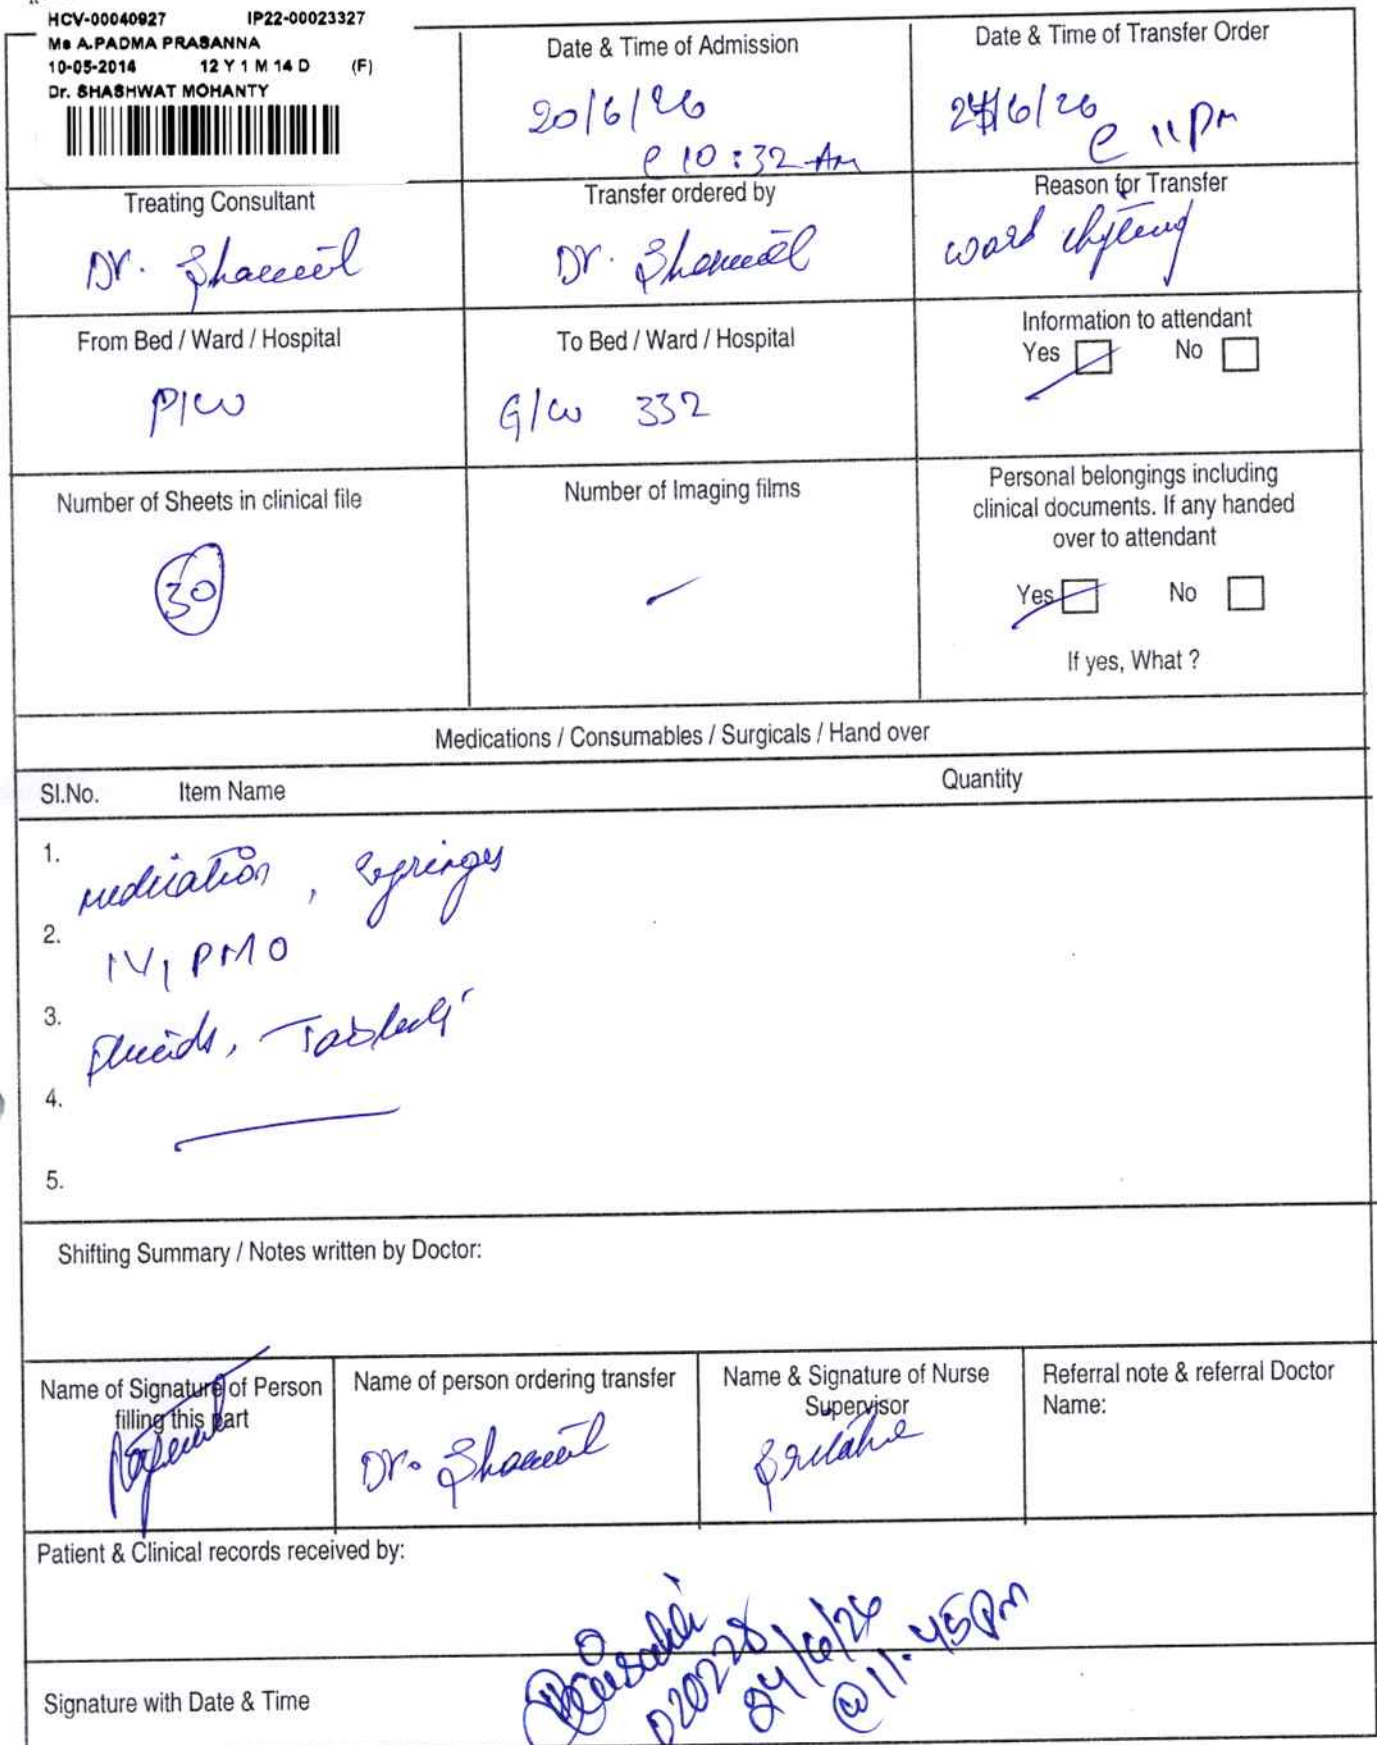 HCV-00040927 IP22-00023327
Ms A.PADMA PRASANNA
10-05-2014 12 Y 1 M 14 D (F)
Dr. SHASHWAT MOHANTY
Date & Time of Admission
20/6/26
@ 10:32 AM
Date & Time of Transfer Order
24/6/26
@ 11 PM
Treating Consultant
Dr.
Transfer ordered by
Dr.
Reason for Transfer
ward
From Bed / Ward / Hospital
P/W
To Bed / Ward / Hospital
G/W 332
Information to attendant
Yes No
Number of Sheets in clinical file
30
Number of Imaging films
Personal belongings including
clinical documents. If any handed
over to attendant
Yes No
If yes, What ?
Medications / Consumables / Surgicals / Hand over
Sl.No. Item Name Quantity
1. medication, Syringes
2. IV, PMO
3. Fluids, Tablets
4.
5.
Shifting Summary / Notes written by Doctor:
Name of Signature of Person
filling this part
Name of person ordering transfer
Dr.
Name & Signature of Nurse
Supervisor
Referral note & referral Doctor
Name:
Patient & Clinical records received by:
020228
24/6/26
@ 11.45 PM
Signature with Date & Time